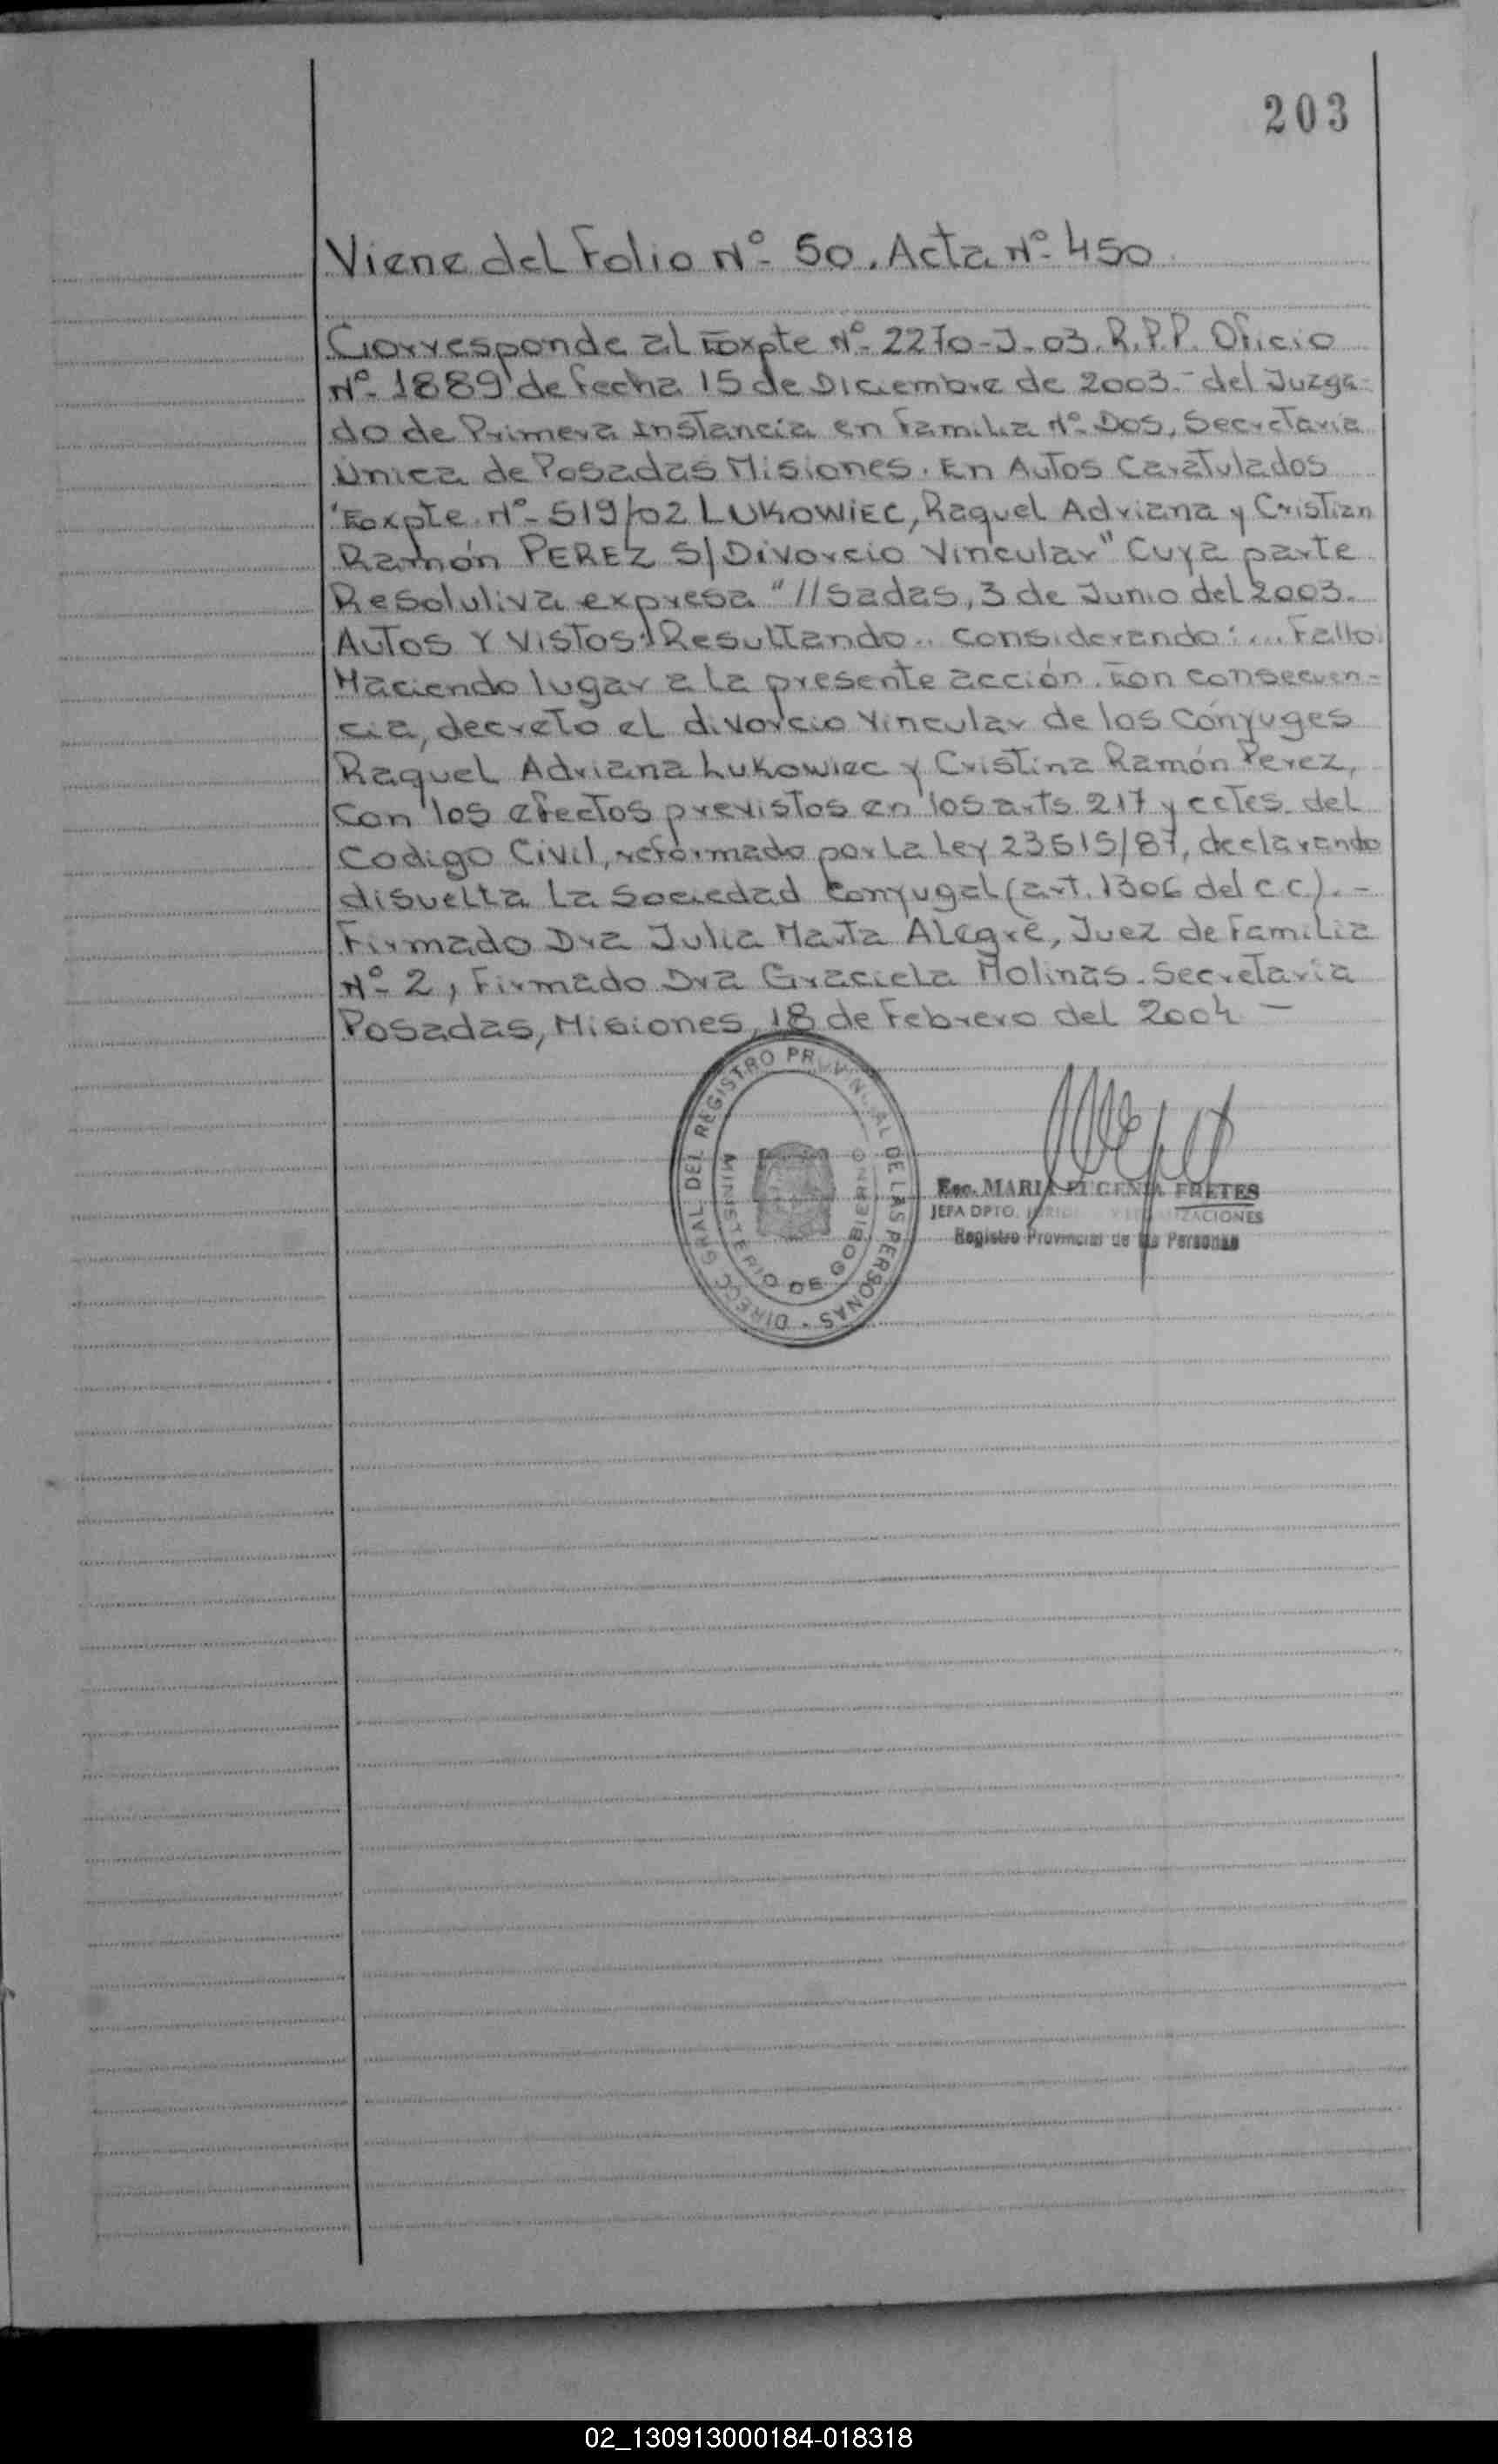 203
Viene del Folio Nº 50. Acta Nº 450
Corresponde al Expte Nº 2270-J-03. R.P.P. Oficio
Nº 1889 de fecha 15 de Diciembre de 2003.- del Juzga-
do de Primera Instancia en Familia Nº Dos, Secretaria
Unica de Posadas Misiones. En Autos Caratulados
"Expte. Nº 519/02 LUKOWIEC, Raquel Adriana y Cristian
Ramón PEREZ S/Divorcio Vincular" Cuya parte
Resoluliva expresa "//Sadas, 3 de Junio del 2003.
Autos Y Vistos: Resultando.. Considerando:... Fallo:
Haciendo lugar a la presente acción. En consecuen-
cia, decreto el divorcio Vincular de los Cónyuges
Raquel Adriana Lukowiec y Cristina Ramón Perez,
Con los efectos previstos en los arts. 217 y cctes. del
Codigo Civil, reformado por la Ley 23515/87, declarando
disuelta la Sociedad Conyugal (art. 1306 del c c). -
Firmado Dra Julia Marta Alegre, Juez de Familia
Nº 2, Firmado Dra Graciela Molinas. Secretaria
Posadas, Misiones, 18 de Febrero del 2004 -
DIRECC. GRAL. DEL REGISTRO PROVINCIAL DE LAS PERSONAS
MINISTERIO DE GOBIERNO
Esc. MARIA EUGENIA FRETES
JEFA DPTO.
Registro Provincial de las Personas
02_130913000184-018318